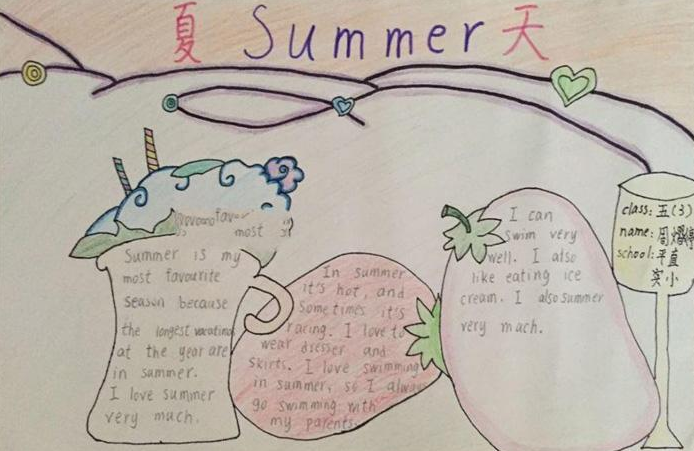 夏 Summer 天
favor
most
Summer is my
most favourite
season because
the longest vacation
at the year are
in summer.
I love summer
very much.
In summer
it's hot, and
Sometimes it's
racing. I love to
wear dresser and
skirts. I love swimming
in summer, so I always
go swimming with
my parents.
I can
swim very
well. I also
like eating ice
cream. I also summer
very mach.
class: 五(3)
name: 周
school: 平直
实小